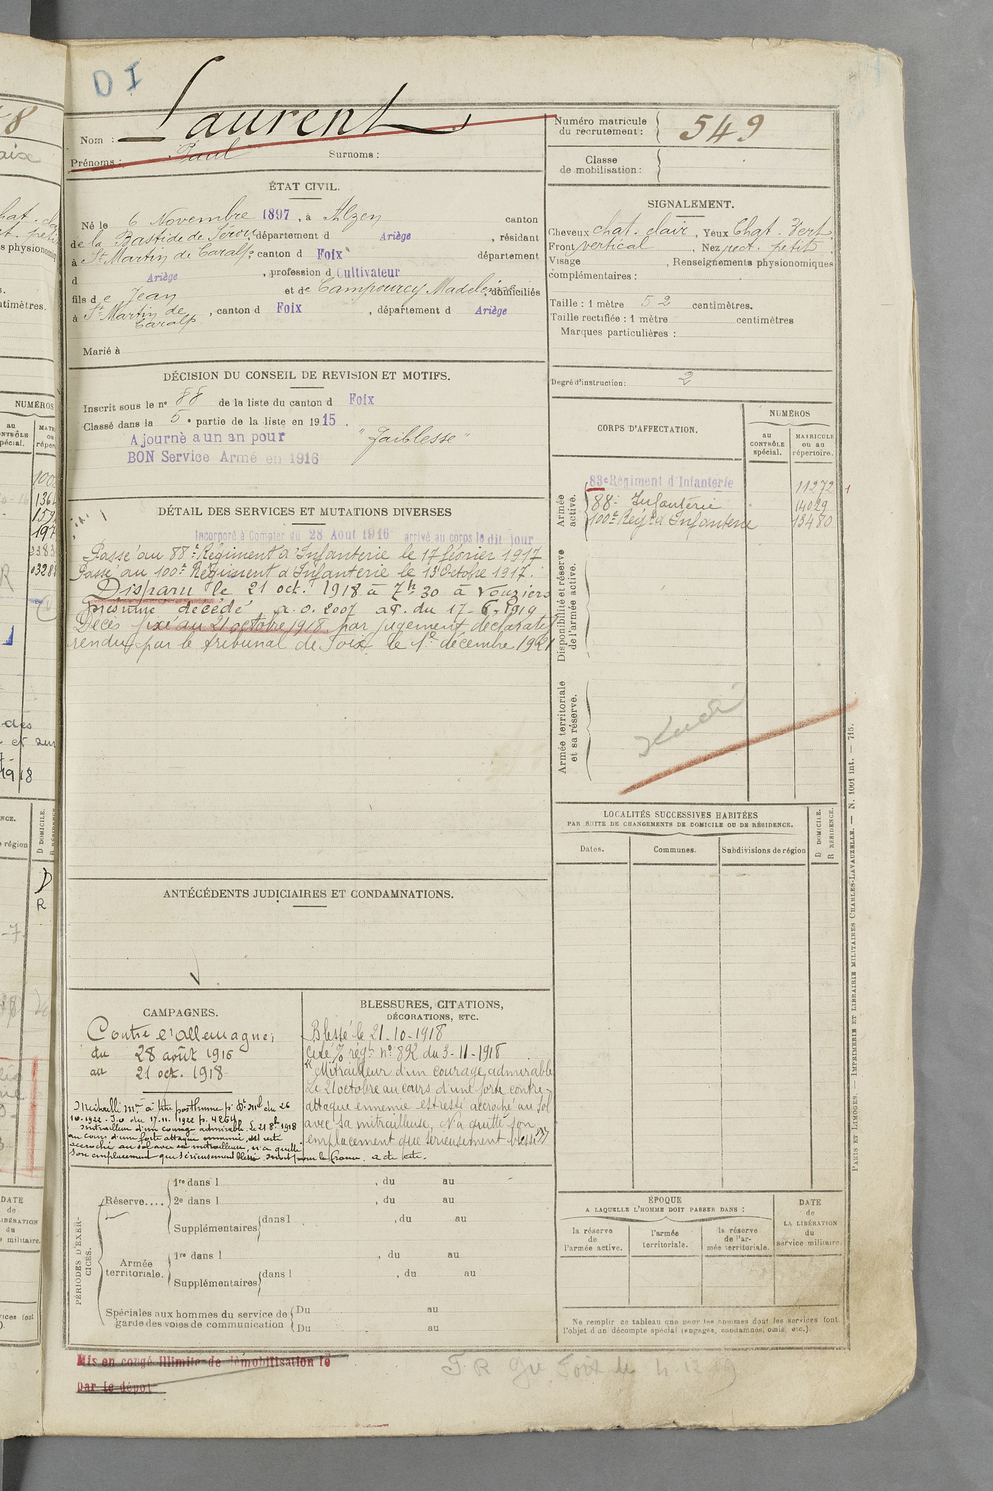 D I
Laurent
Nom :
Prénoms : Paul Surnoms :
Numéro matricule
du recrutement : 549
Classe
de mobilisation :
ÉTAT CIVIL.
Né le 6 Novembre 1897, à Alzen canton
de la Bastide de Sérou, département d Ariège, résidant
à St Martin de Caralp, canton d Foix département
d Ariège, profession d Cultivateur
fils de Jean et de Campourcy Madeleine, domiciliés
à St Martin de Caralp, canton d Foix, département d Ariège
Marié à
SIGNALEMENT.
Cheveux chat. clair, Yeux Chat. Vert.
Front vertical, Nez rect. petit
Visage , Renseignements physionomiques
complémentaires :
Taille : 1 mètre 52 centimètres.
Taille rectifiée : 1 mètre centimètres
Marques particulières :
Degré d'instruction : 2
DÉCISION DU CONSEIL DE REVISION ET MOTIFS.
Inscrit sous le n° 88 de la liste du canton d Foix
Classé dans la 5e partie de la liste en 1915.
Ajourné à un an pour "faiblesse"
BON Service Armé en 1916
CORPS D'AFFECTATION.
NUMÉROS
au
CONTRÔLE
spécial.
MATRICULE
ou au
répertoire.
Armée
active.
83e Régiment d'Infanterie 11272
88e Infanterie 14029
100e Régt d'Infanterie 13480
Disponibilité et réserve
de l'armée active.
Armée territoriale
et sa réserve.
DÉTAIL DES SERVICES ET MUTATIONS DIVERSES
Incorporé à Compter du 28 Aout 1916 arrivé au corps le dit jour
Passé au 88e Régiment d'Infanterie le 17 février 1917
Passé au 100e Régiment d'Infanterie le 13 Octobre 1917.
Disparu le 21 oct. 1918 à 7h30 à Vouziers
présumé décédé, a.o. 2007 aq. du 17-6-1919
Décès fixé au 21 octobre 1918 par jugement déclaratif
rendu par le tribunal de Foix le 1er décembre 1921
LOCALITÉS SUCCESSIVES HABITÉES
PAR SUITE DE CHANGEMENTS DE DOMICILE OU DE RÉSIDENCE.
Dates.
Communes.
Subdivisions de région
D DOMICILE.
R RÉSIDENCE.
ANTÉCÉDENTS JUDICIAIRES ET CONDAMNATIONS.
CAMPAGNES.
Contre l'allemagne;
du 28 août 1916
au 21 oct. 1918
Médaille Mre à titre posthume
10.1922. J.o du 17.11.1922 p. 4264
mitrailleur d'un courage admirable. Le 21 8bre 1918
au cours d'une forte attaque ennemie, est resté
accroché au sol avec sa mitrailleuse, n'a quitté
son emplacement que sérieusement blessé.
BLESSURES, CITATIONS,
DÉCORATIONS, ETC.
Blessé le 21-10-1918
Cité O/ régt n° 892 du 3-11-1918
"Mitrailleur d'un courage admirable
Le 21 octobre au cours d'une forte contre-
attaque ennemie est resté accroché au sol
avec sa mitrailleuse. N'a quitté son
emplacement que sérieusement blessé"
PÉRIODES D'EXERCICES.
Réserve....
1re dans l , du au
2e dans l , du au
Supplémentaires dans l , du au
Armée
territoriale.
1re dans l , du au
Supplémentaires dans l , du au
Spéciales aux hommes du service de
garde des voies de communication
Du au
Du au
ÉPOQUE
A LAQUELLE L'HOMME DOIT PASSER DANS :
la réserve
de
l'armée active.
l'armée
territoriale.
la réserve
de l'ar-
mée territoriale.
DATE
de
LA LIBÉRATION
du
service militaire.
Ne remplir ce tableau que pour les hommes dont les services font
l'objet d'un décompte spécial (engagés, condamnés, omis, etc.).
Mis en congé illimité de démobilisation le
par le dépôt
PARIS ET LIMOGES. — IMPRIMERIE ET LIBRAIRIE MILITAIRES CHARLES-LAVAUZELLE. — N. 1001 int. — 715.